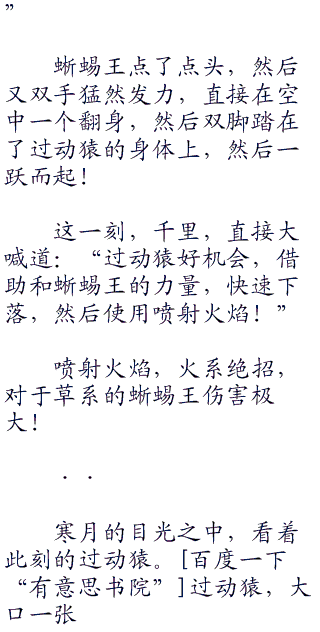 ”
蜥蜴王点了点头，然后
又双手猛然发力，直接在空
中一个翻身，然后双脚踏在
了过动猿的身体上，然后一
跃而起！
这一刻，千里，直接大
喊道：“过动猿好机会，借
助和蜥蜴王的力量，快速下
落，然后使用喷射火焰！”
喷射火焰，火系绝招，
对于草系的蜥蜴王伤害极
大！
．．
寒月的目光之中，看着
此刻的过动猿。[百度一下
“有意思书院”]过动猿，大
口一张